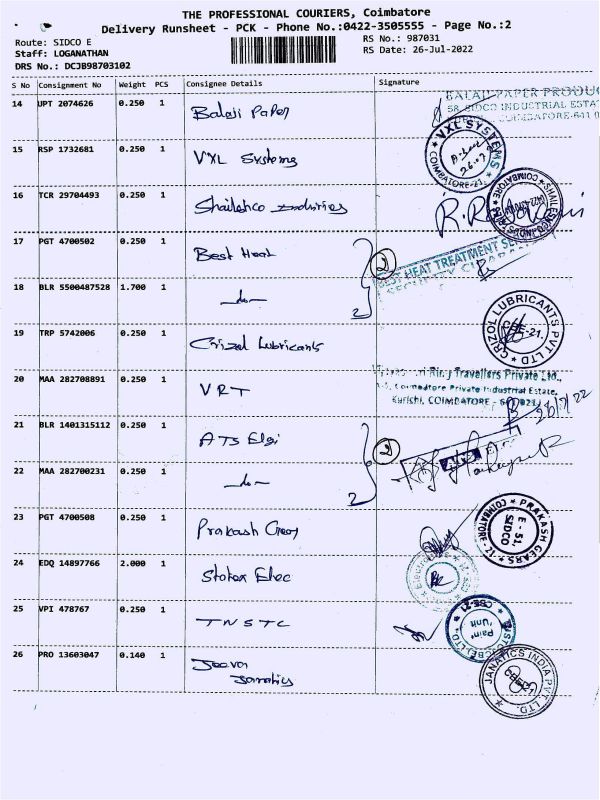 THE PROFESSIONAL COURIERS, Coimbatore
Delivery Runsheet - PCK - Phone No.:0422-3505555 - Page No.:2
Route: SIDCO E
RS No.: 987031
Staff: LOGANATHAN
RS Date: 26-Jul-2022
DRS No.: DCJB98703102
S No Consignment No Weight PCS Consignee Details Signature
14 UPT 2074626 0.250 1 Balaji Paper
BALAJI PAPER PRODUC
58, SIDCO INDUSTRIAL ESTAT
COIMBATORE-641 0
15 RSP 1732681 0.250 1 VXL Systems
VXL SYSTEMS
COIMBATORE-21.
16 TCR 29704493 0.250 1
COIMBATORE
17 PGT 4700502 0.250 1 Best Heat
2
BEST HEAT TREATMENT SE
18 BLR 5500487528 1.700 1 -do-
2
19 TRP 5742006 0.250 1 Crizol Lubricants
CRIZOL LUBRICANTS PVT LTD
CBE-21.
20 MAA 282708891 0.250 1 VRT
Travellers Private Ltd.,
Coimbatore Private Industrial Estate,
Kurichi, COIMBATORE - 641 021.
26/7/22
21 BLR 1401315112 0.250 1 ATS Elgi
2
22 MAA 282700231 0.250 1 -do-
2
23 PGT 4700508 0.250 1 Prakash Gears
PRAKASH GEARS
E-51,
SIDCO
COIMBATORE-21
24 EDQ 14897766 2.000 1 Statex Elec
25 VPI 478767 0.250 1 TNSTC
CBE-21
Paint
Unit
26 PRO 13603047 0.140 1 Jeeva
Janatics
JANATICS INDIA PVT. LTD.
CBE-21